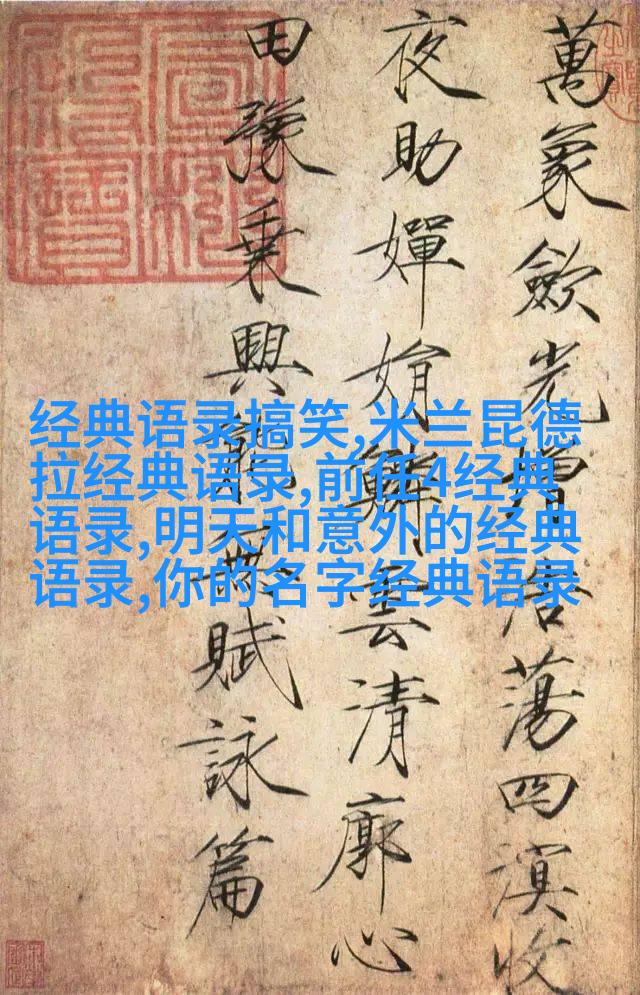 萬象歛光增浩蕩四溟收
夜助嬋娟鱗雲清廓心
田豫乘興能無賦詠篇
经典语录搞笑,米兰昆德
拉经典语录,前任4经典
语录,明天和意外的经典
语录,你的名字经典语录